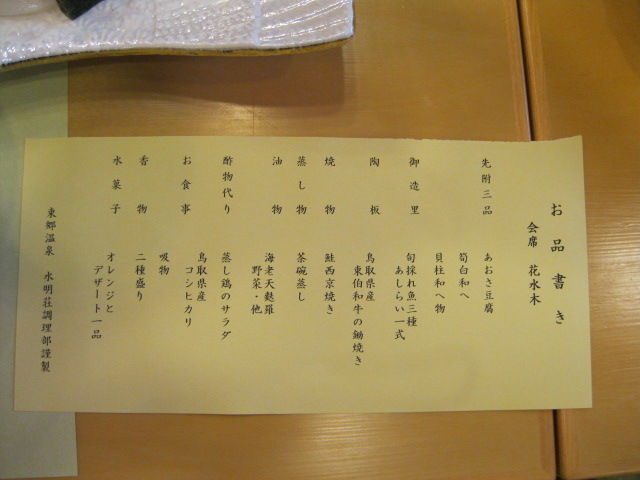 お品書き
会席 花水木
先附三品
あおさ豆腐
筍白和へ
貝柱和へ物
御造里
旬採れ魚三種
あしらい一式
陶板
鳥取県産
東伯和牛の鋤焼き
焼物
鮭西京焼き
蒸し物
茶碗蒸し
油物
海老天麩羅
野菜・他
酢物代り
蒸し鶏のサラダ
お食事
鳥取県産
コシヒカリ
吸物
香物
二種盛り
水菓子
オレンジと
デザート一品
東郷温泉 水明荘調理部謹製